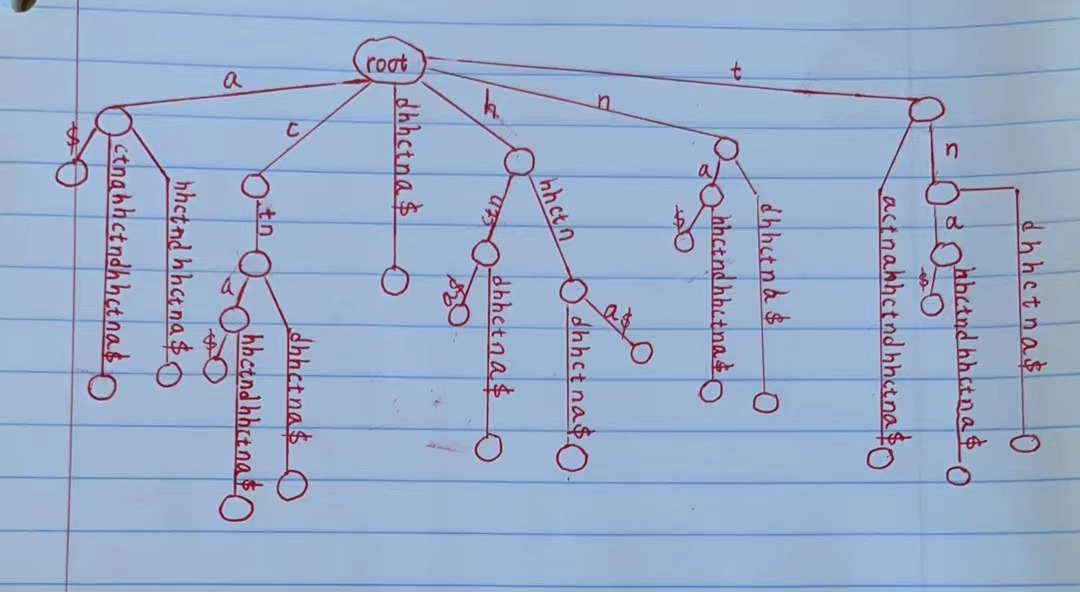 root
a
c
dhhctna$
h
n
t
$
ctnahhctndhhctna$
hhctndhhctna$
tn
a
$
hhctndhhctna$
dhhctna$
dhhctna$
hhctn
dhhctna$
a$
a
$
hhctndhhctna$
actnahhctndhhctna$
n
a
hhctndhhctna$
dhhctna$